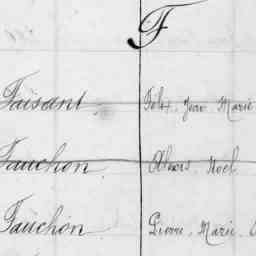 F
Faisant. Felix, Jean Marie
Fauchon. Alexis, Noël
Fauchon Pierre, Marie